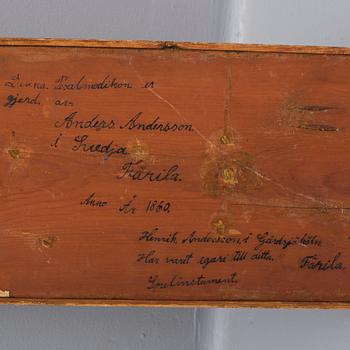 Denna Psalmodikon er
gjord. av
Anders Andersson
i Svedja
Färila.
Anno År 1860.
Henrik Andersson, i Gårdsjöhöln
Har varit egare till detta. Färila.
Spelinstument.